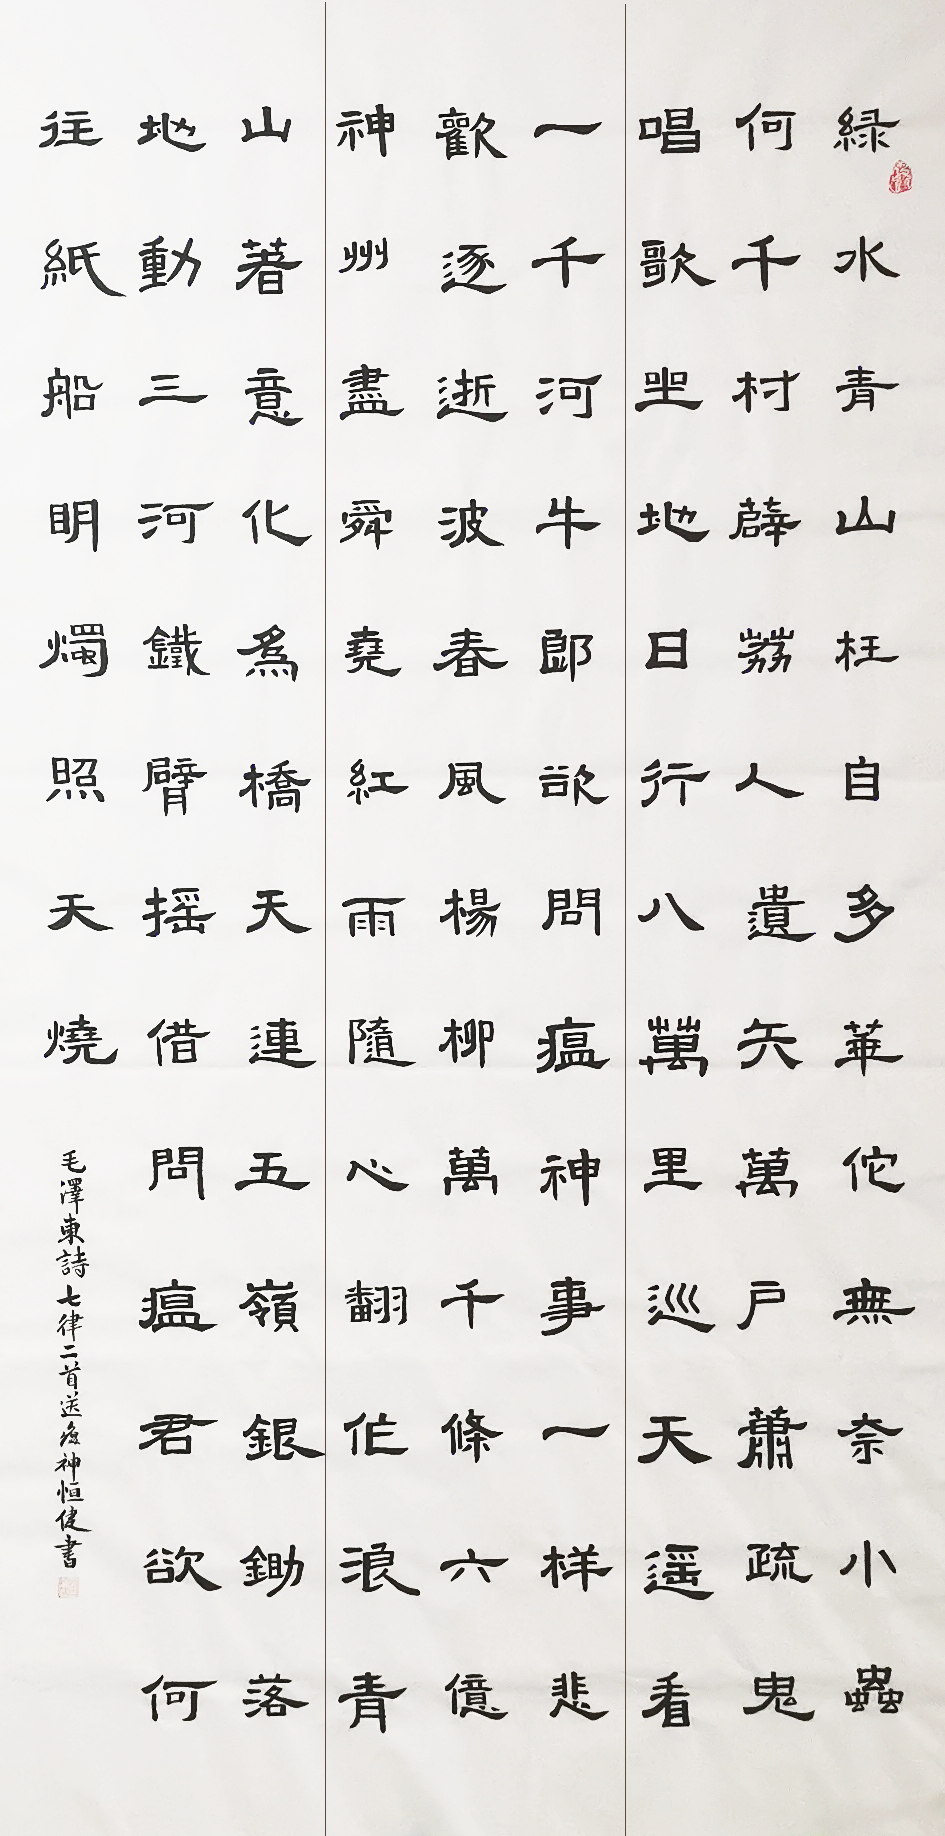 緑水青山枉自多華佗無奈小蟲
何千村薜荔人遺矢萬戶蕭疏鬼
唱歌坐地日行八萬里巡天遥看
一千河牛郎欲問瘟神事一样悲
歡逐逝波春風楊柳萬千條六億
神州盡舜堯紅雨隨心翻作浪青
山著意化為橋天連五嶺銀鋤落
地動三河鐵臂摇借問瘟君欲何
往紙船明燭照天燒
毛澤東詩七律二首送瘟神恒健書